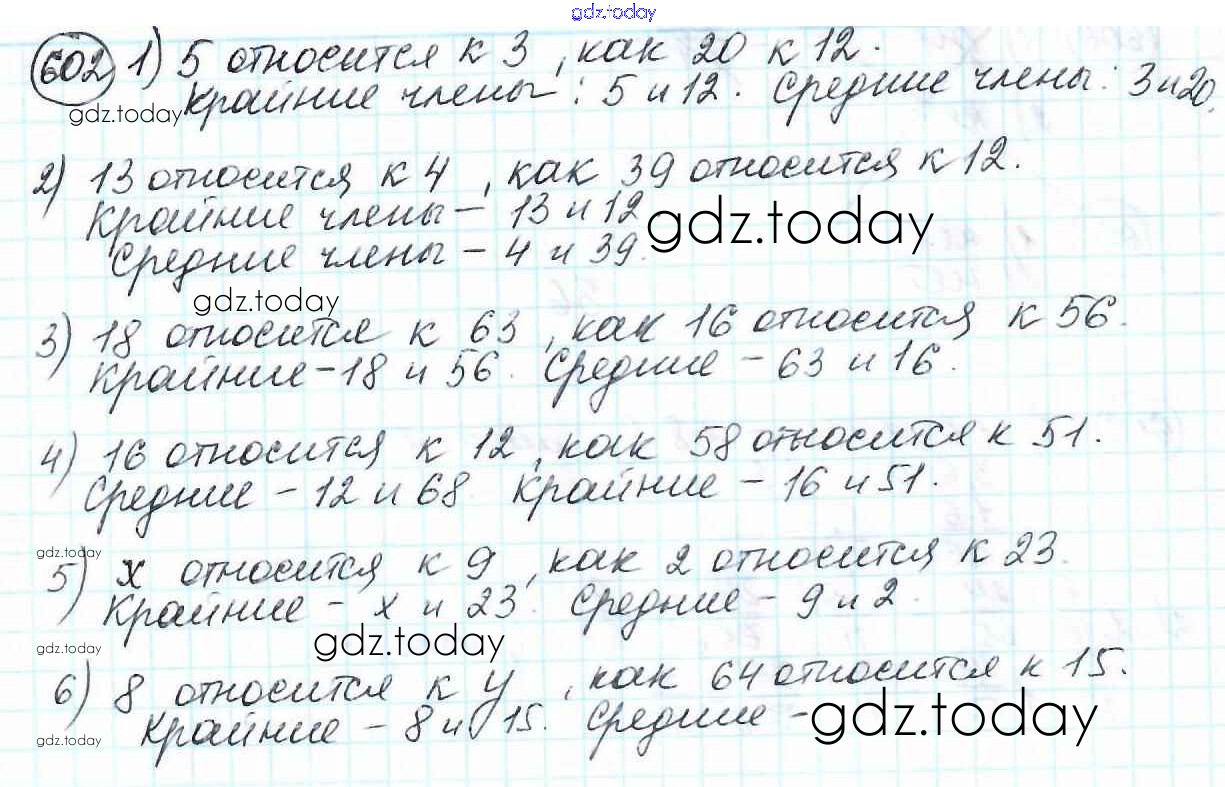 gdz.today
602 1) 5 относится к 3, как 20 к 12.
gdz.today Крайние члены: 5 и 12. Средние члены: 3 и 20.
2) 13 относится к 4, как 39 относится к 12.
Крайние члены – 13 и 12 gdz.today
Средние члены – 4 и 39.
gdz.today
3) 18 относится к 63, как 16 относится к 56.
Крайние – 18 и 56. Средние – 63 и 16.
4) 16 относится к 12, как 58 относится к 51.
Средние – 12 и 68. Крайние – 16 и 51.
gdz.today
5) x относится к 9, как 2 относится к 23.
Крайние – x и 23. Средние – 9 и 2.
gdz.today gdz.today
6) 8 относится к y, как 64 относится к 15.
Крайние – 8 и 15. Средние – gdz.today
gdz.today